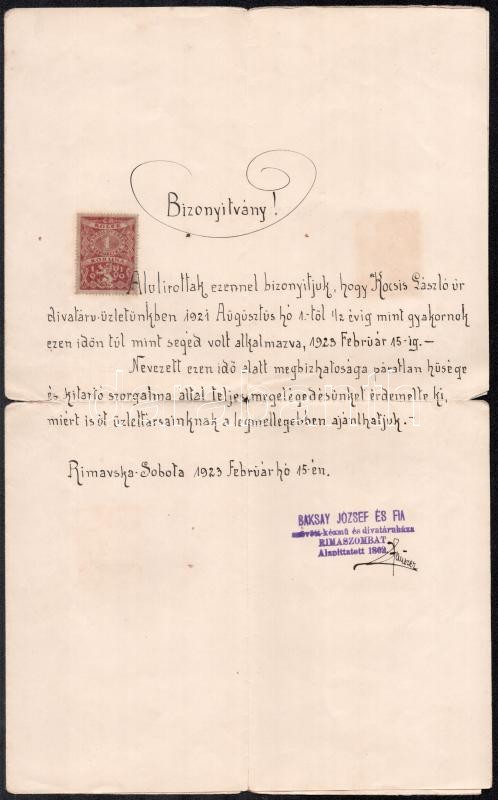 Bizonyitvány!
KOLEK
1
KORUNA
Alulirottak ezennel bizonyitjuk, hogy Kocsis László úr
divatáru-üzletünkben 1921 Augusztus hó 1.-töl 1/2 évig mint gyakornok
ezen idön túl mint segéd volt alkalmazva, 1923 Február 15-ig.-
Nevezett ezen idö alatt megbizhatosága páratlan hüsége
és kitartó szorgalma által teljes megelégedésünket érdemelte ki,
miért is öt üzlettársainknak a legmellegebben ajánlhatjuk.-
Rimavska-Sobota 1923 Február hó 15-én.
BAKSAY JÓZSEF ÉS FIA
szövött-kézmü és divatáruháza
RIMASZOMBAT
Alapittatott 1862
darabanth.com